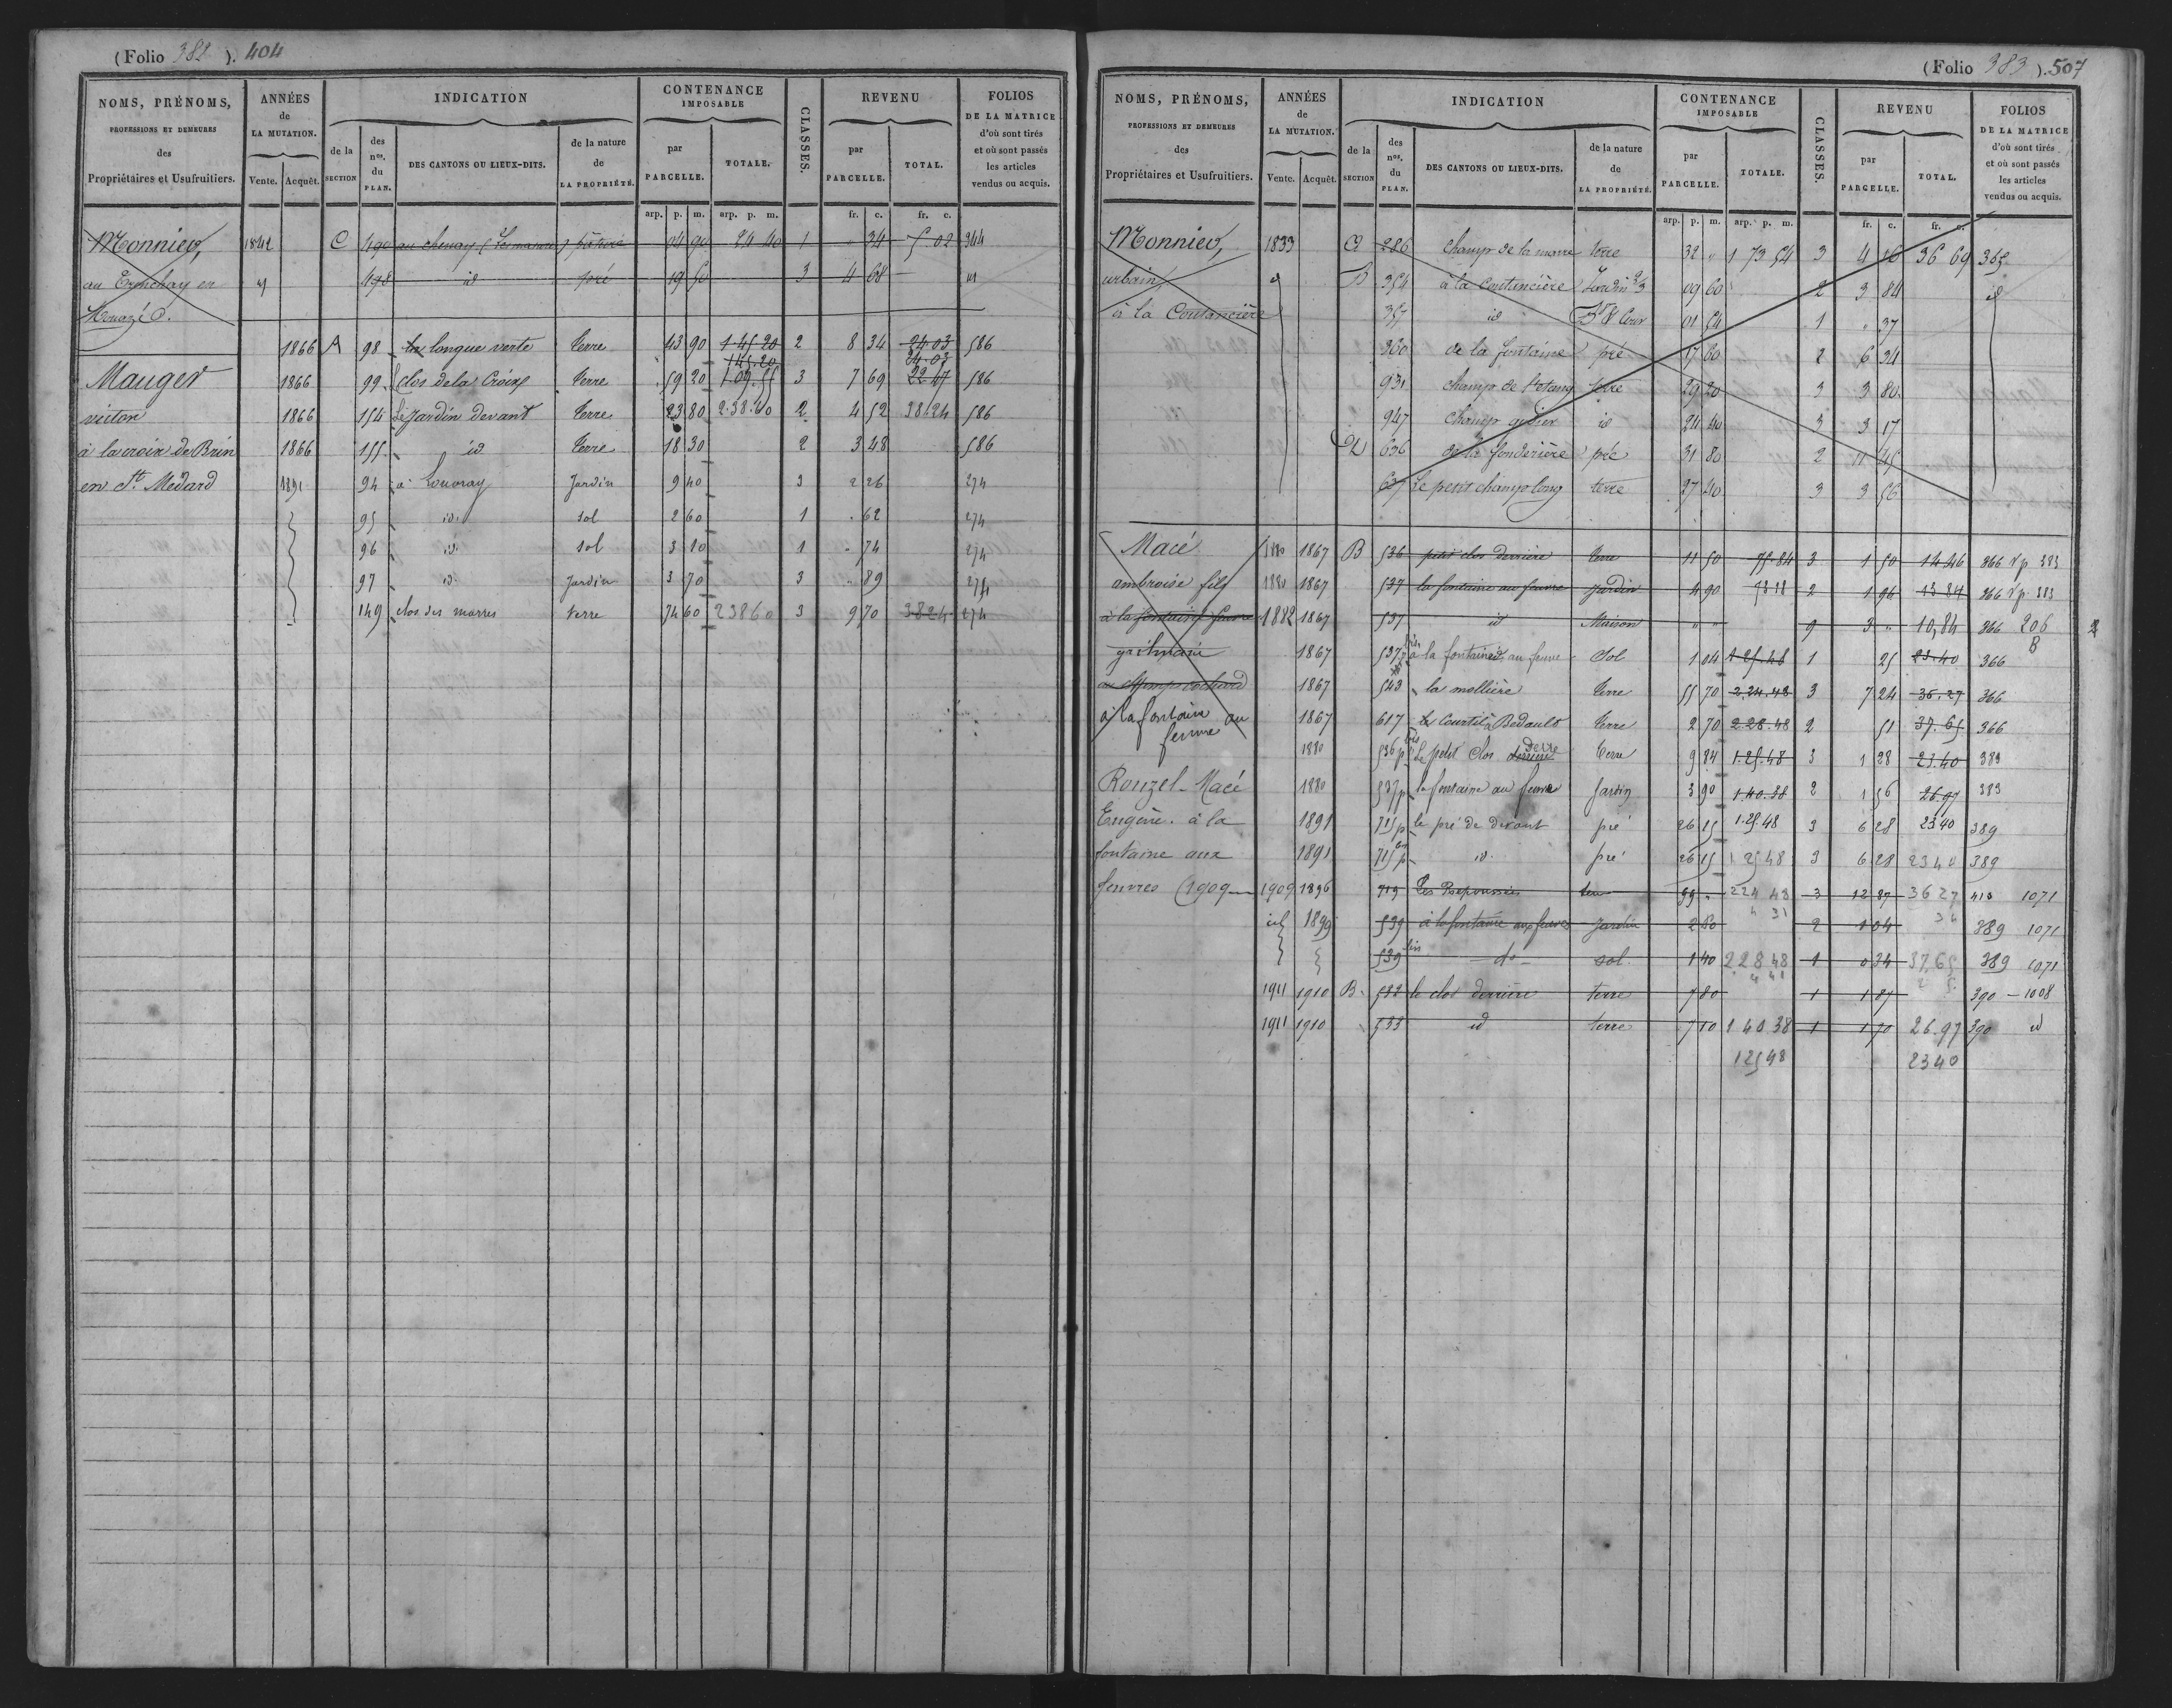 (Folio 382 ). 404
NOMS, PRÉNOMS, PROFESSIONS ET DEMEURES des Propriétaires et Usufruitiers.
ANNÉES de LA MUTATION. Vente. Acquêt.
INDICATION de la SECTION des nos. du PLAN. DES CANTONS OU LIEUX-DITS. de la nature de LA PROPRIÉTÉ.
CONTENANCE IMPOSABLE par PARCELLE. TOTALE.
CLASSES.
REVENU par PARCELLE. TOTAL.
FOLIOS DE LA MATRICE d'où sont tirés et où sont passés les articles vendus ou acquis.
arp. p. m. arp. p. m. fr. c. fr. c.
Monnier, 1842 C 490 au chenay pâture 04 90 24 40 1 " 34 5 02 344
au en id 498 id pré 19 50 3 4 68 id
1866 A 98 la longue verte terre 43 90 1 45 20 2 8 34 24.03 586
145.20 24.03
Mauger 1866 99 clos de la Croix terre 59 20 1.09.55 3 7 69 22 47 586
victon 1866 154 Le jardin devant terre 23 80 2.38.60 2 4 52 38.24 586
à la croix de Brin 1866 155 id terre 18 30 2 3 48 586
en St. Médard 1891 94 à Louvray Jardin 9 40 3 2 26 274
95 id. sol 2 60 1 . 62 274
96 id. sol 3 10 1 " 74 274
97 id. Jardin 3 70 3 " 89 274
149 clos des marres terre 74 60 2 38 60 3 9 70 38 24 274
(Folio 383 ). 507
NOMS, PRÉNOMS, PROFESSIONS ET DEMEURES des Propriétaires et Usufruitiers.
ANNÉES de LA MUTATION. Vente. Acquêt.
INDICATION de la SECTION des nos. du PLAN. DES CANTONS OU LIEUX-DITS. de la nature de LA PROPRIÉTÉ.
CONTENANCE IMPOSABLE par PARCELLE. TOTALE.
CLASSES.
REVENU par PARCELLE. TOTAL.
FOLIOS DE LA MATRICE d'où sont tirés et où sont passés les articles vendus ou acquis.
arp. p. m. arp. p. m. fr. c. fr. c.
Monnier, 1833 286 champ de la marre terre 32 " 1 73 54 3 4 16 36 69 365
urbain, id B 354 à la Coutancière Jardin 09 60 2 3 84 id
à la Coutancière 357 id Cour 01 54 1 " 37
360 de la fontaine pré 17 60 2 6 34
931 champ de l'étang terre 29 20 3 3 80
947 id 24 40 3 3 17
636 de la fonderière pré 31 80 2 11 45
637 Le petit champ long terre 27 40 3 3 56
Macé 1880 1867 B 536 petit clos derrière terre 11 50 75.84 3 1 50 14 46 366 Vp. 383
ambroise fils 1880 1867 537 la fontaine au feuvre jardin 4 90 2 1 96 13 84 366 Vp. 383
à la fontaine feuvre 1882 1867 537 id Maison " " 9 3 " 10,84 366 206
1867 537 bis à la fontaine au feuvre Sol 1 04 1.25.48 1 25 23.40 366
1867 543 la mollière terre 55 70 2.24.48 3 7 24 36.27 366
à la fontaine au 1867 617 le Courtil Bedault terre 2 70 2.28.48 2 51 37.65 366
feuvre 1880 536 p Le petit Clos derrière terre 9 84 1.25.48 3 1 28 23.40 383
Rouzel-Macé 1880 537 p la fontaine au feuvre Jardin 3 90 1.40.38 2 1 56 26.97 383
Eugène. à la 1891 715 p le pré de devant pré 26 15 1.25.48 3 6 28 23 40 389
fontaine aux 1891 715 p id. pré 26 15 1 25 48 3 6 28 23 40 389
feuvres (1909 1909 1896 719 Les 99 " 224 48 3 12 87 36 27 413 1071
id 1899 539 à la fontaine aux feuvres Jardin 2 60 2 1 04 389 1071
539 bis do sol 1 40 2 28 48 1 0 34 37,65 389 1071
1911 1910 B. 532 le clos derrière terre 7 80 1 1 87 390 - 1008
1911 1910 533 id terre 7 10 1 40 38 1 1 70 26.97 390 id
1 25 48 23 40